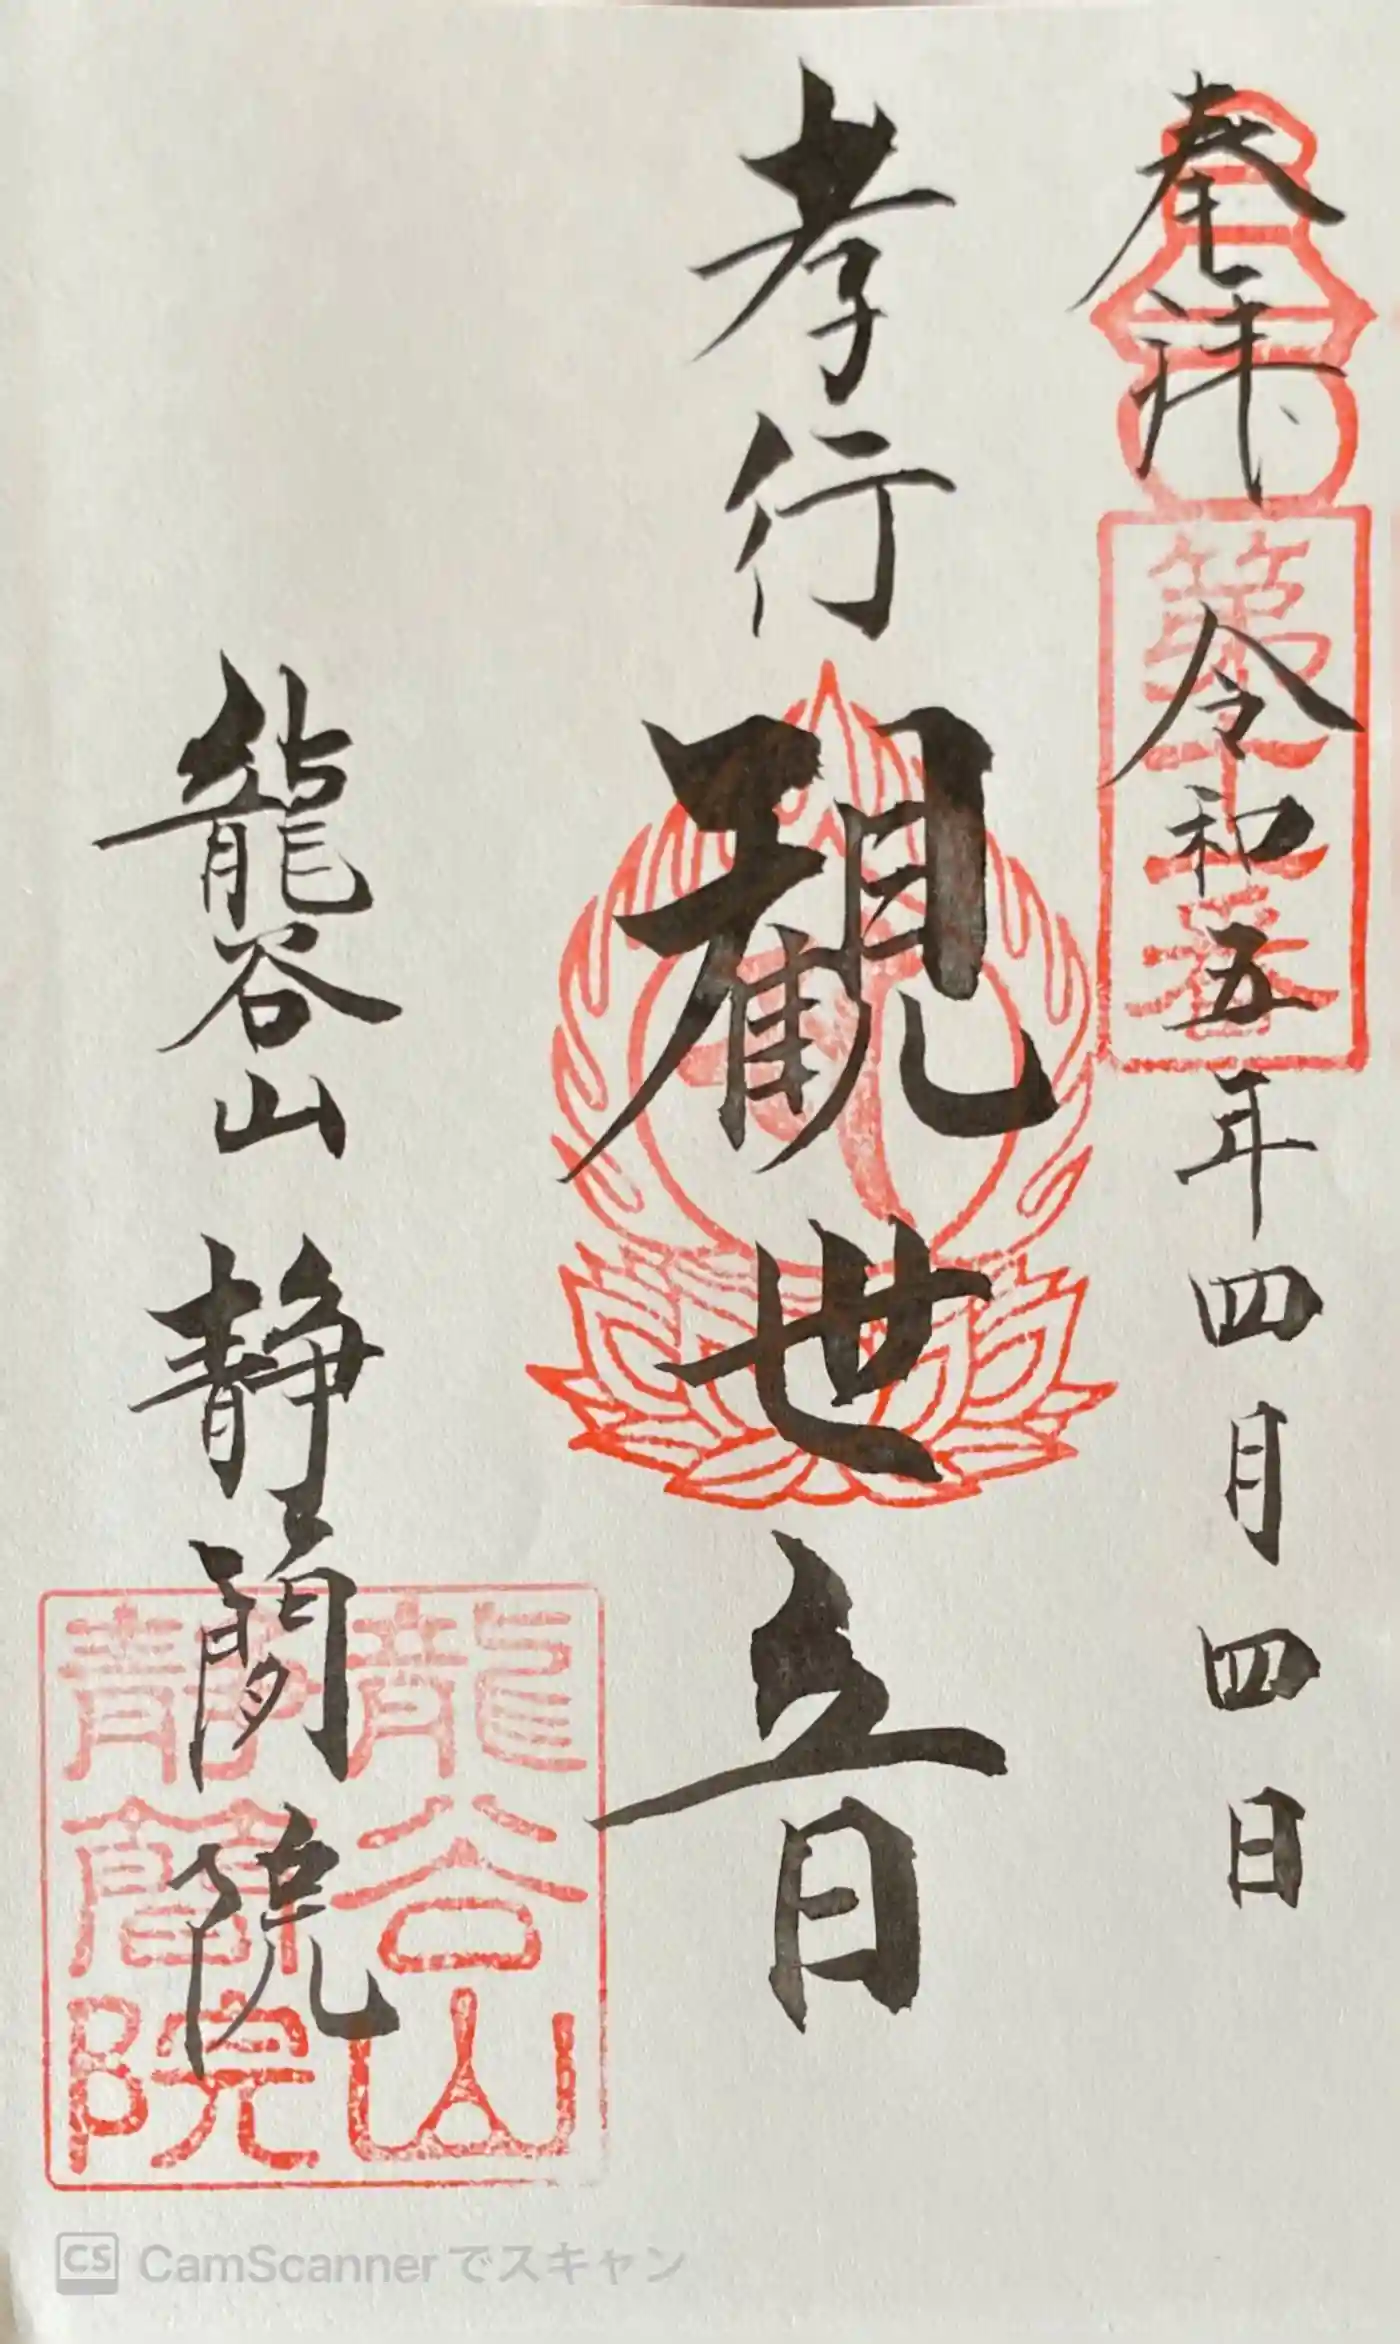 奉拝
令和五年四月四日
第十二番
孝行
観世音
龍谷山 静簡院
龍谷山
静簡院
CS CamScanner でスキャン